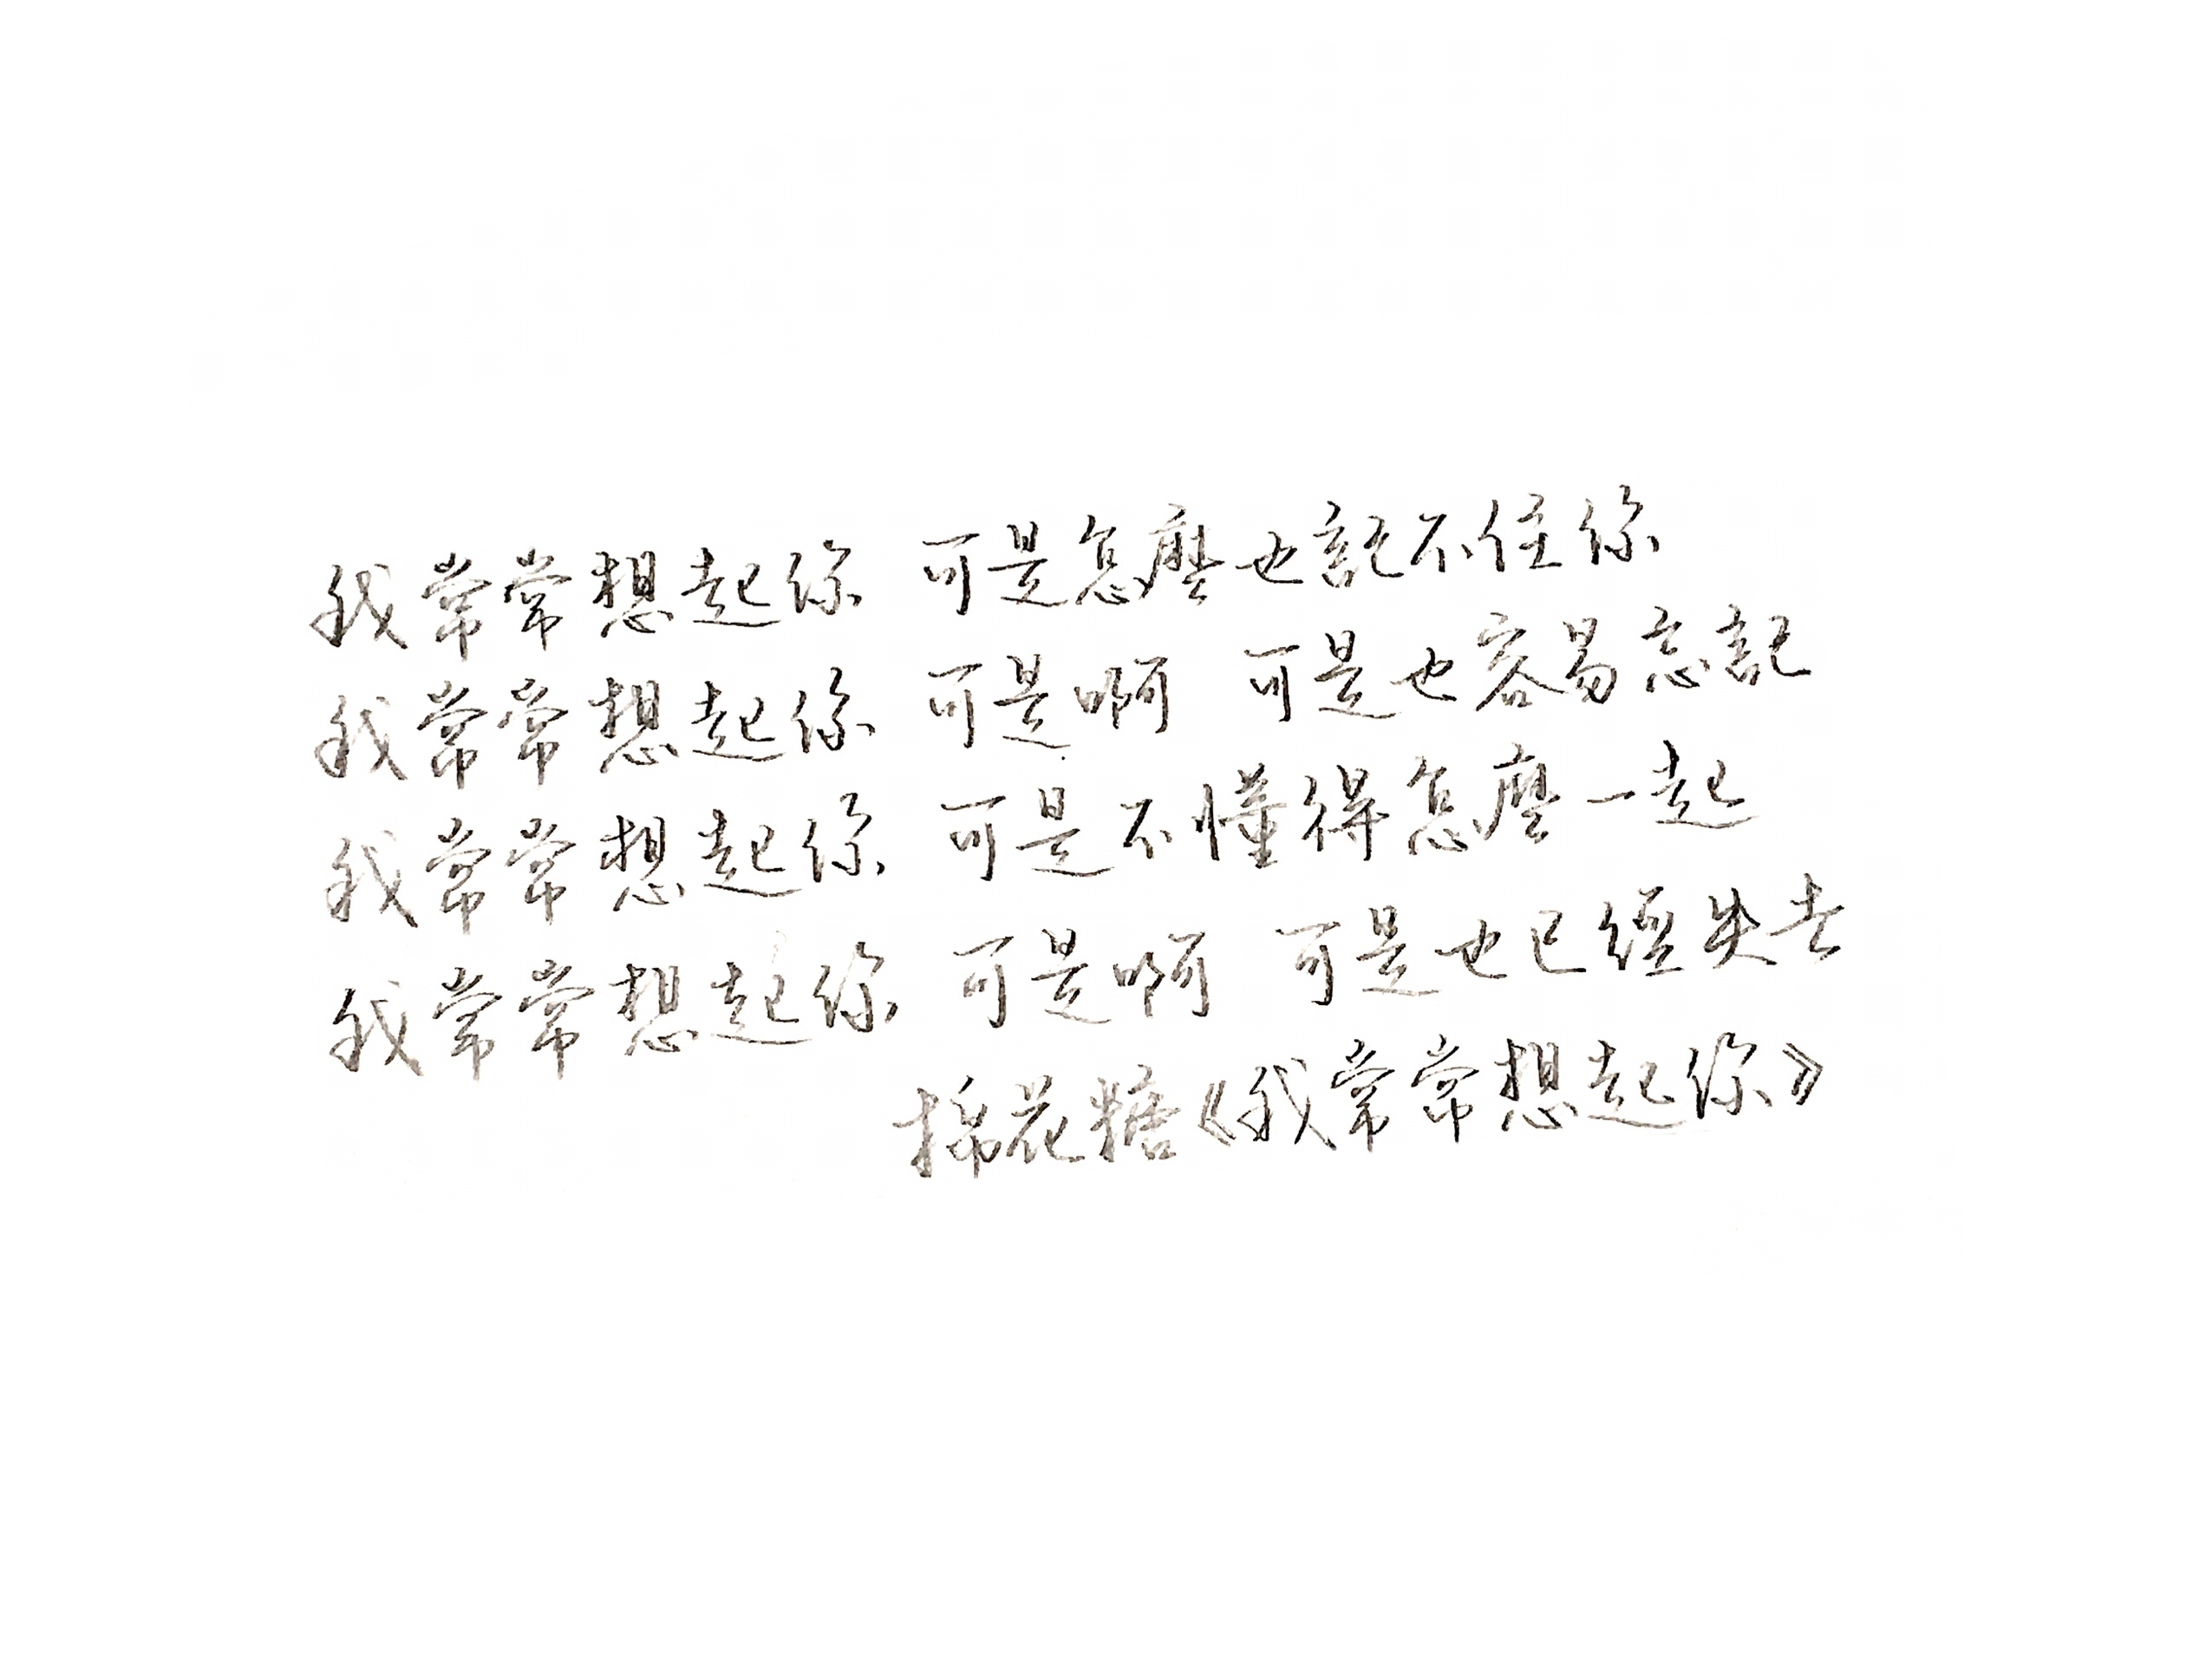 我常常想起你 可是怎麼也記不住你
我常常想起你 可是啊 可是也容易忘記
我常常想起你 可是不懂得怎麼一起
我常常想起你 可是啊 可是也已經失去
棉花糖《我常常想起你》